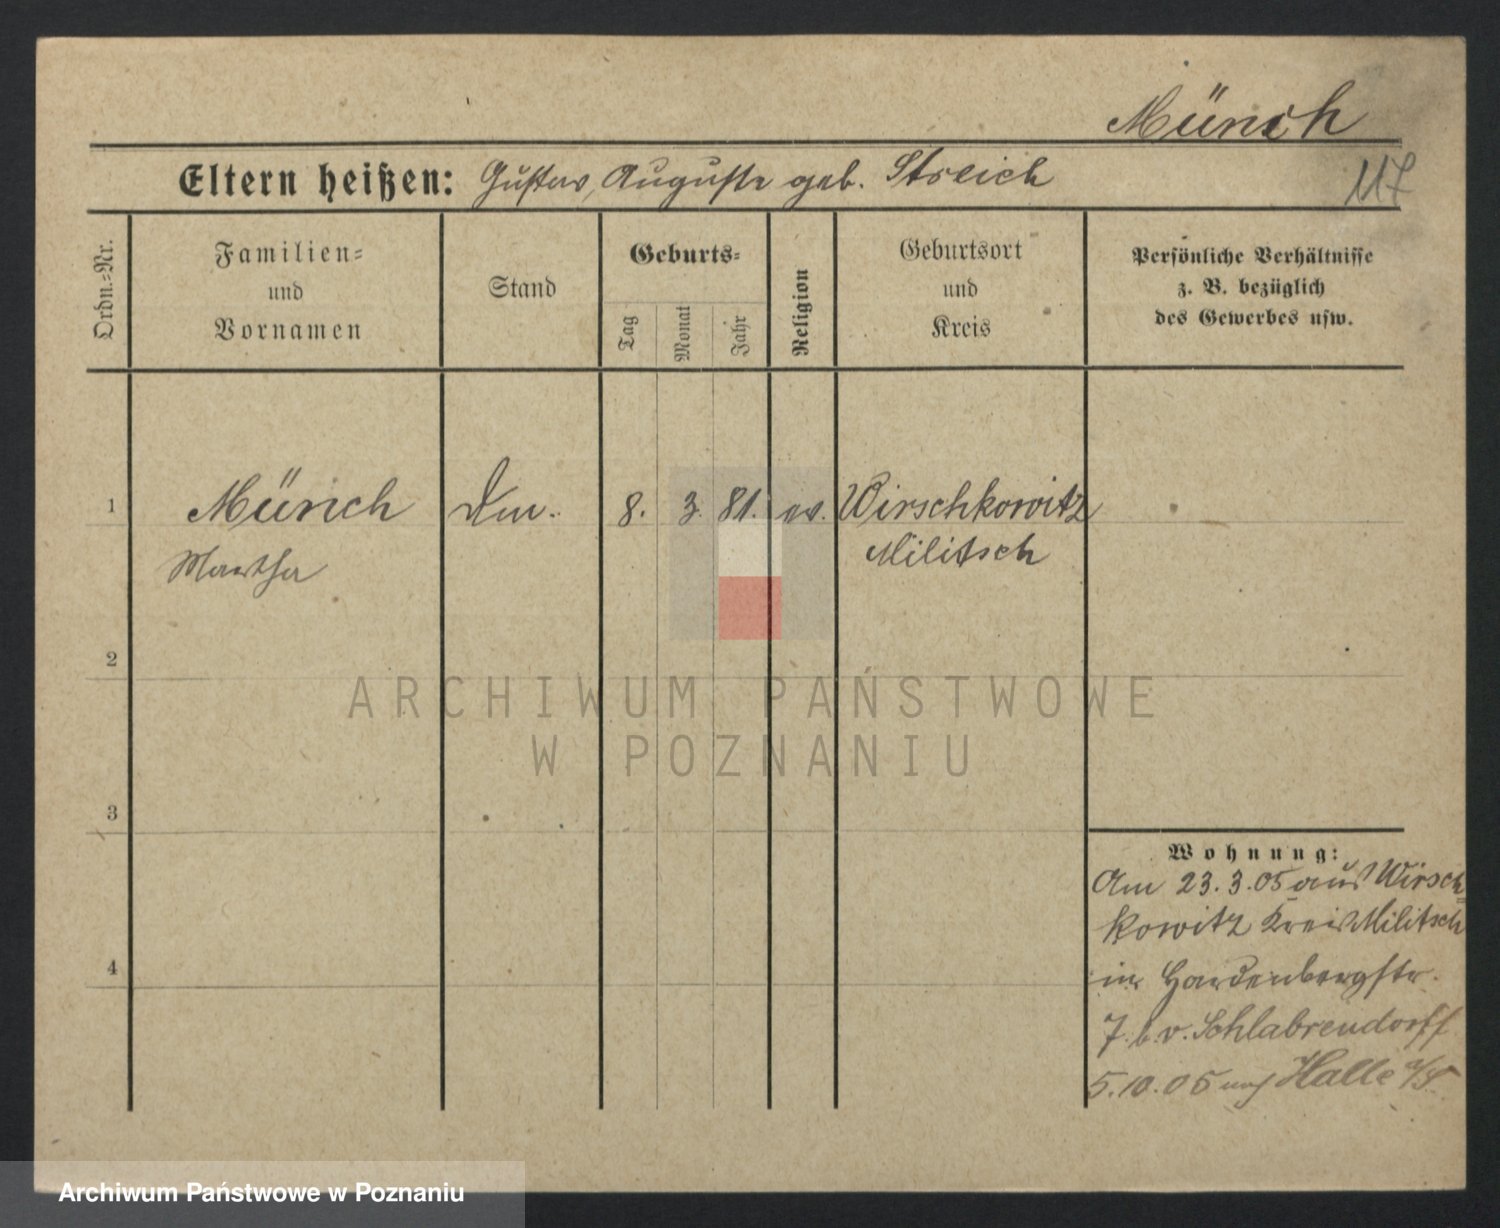 Münch
Eltern heißen: Gustav, Auguste geb. Streich
117
Ordn.=Nr.
Familien=
und
Vornamen
Stand
Geburts=
Tag
Monat
Jahr
Religion
Geburtsort
und
Kreis
Persönliche Verhältnisse
z. B. bezüglich
des Gewerbes usw.
1 Münch 8. 3. 81. ev. Wirschkowitz
Martha Militsch
2
ARCHIWUM PAŃSTWOWE
W POZNANIU
3
Wohnung:
Am 23.3.05 aus Wirsch=
kowitz Kreis Militsch
4
in Hardenbergstr.
7. b. v. Schlabrendorff
5.10.05 nach Halle a/S.
Archiwum Państwowe w Poznaniu